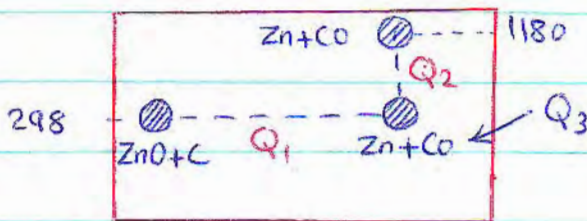 Zn+CO 1180
Q2
298 Q3
ZnO+C Q1 Zn+Co